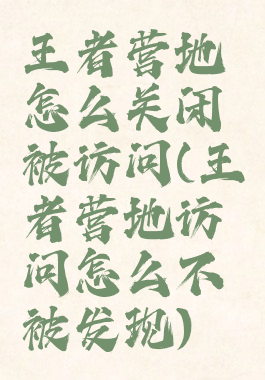 王者营地
怎么关闭
被访问(王
者营地访
问怎么不
被发现)